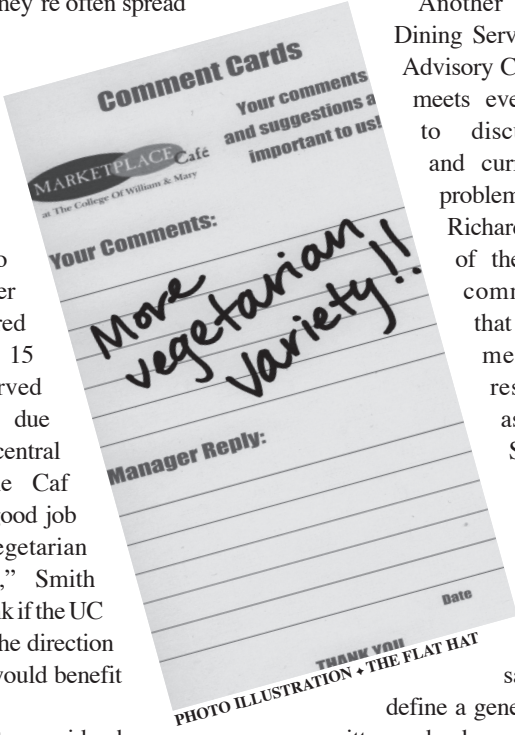 they're often spread
15
due
central
Caf
good job
vegetarian
," Smith
if the UC
the direction
would benefit
Comment Cards
Your comments
and suggestions a
important to us!
MARKETPLACE Café
at The College Of William & Mary
Your Comments:
More
vegetarian
variety!!
Manager Reply:
Date
THANK YOU
PHOTO ILLUSTRATION ✦ THE FLAT HAT
Another
Dining Serv
Advisory C
meets eve
to discu
and curr
problem
Richard
of the
comm
that
me
res
as
S
sa
define a gene